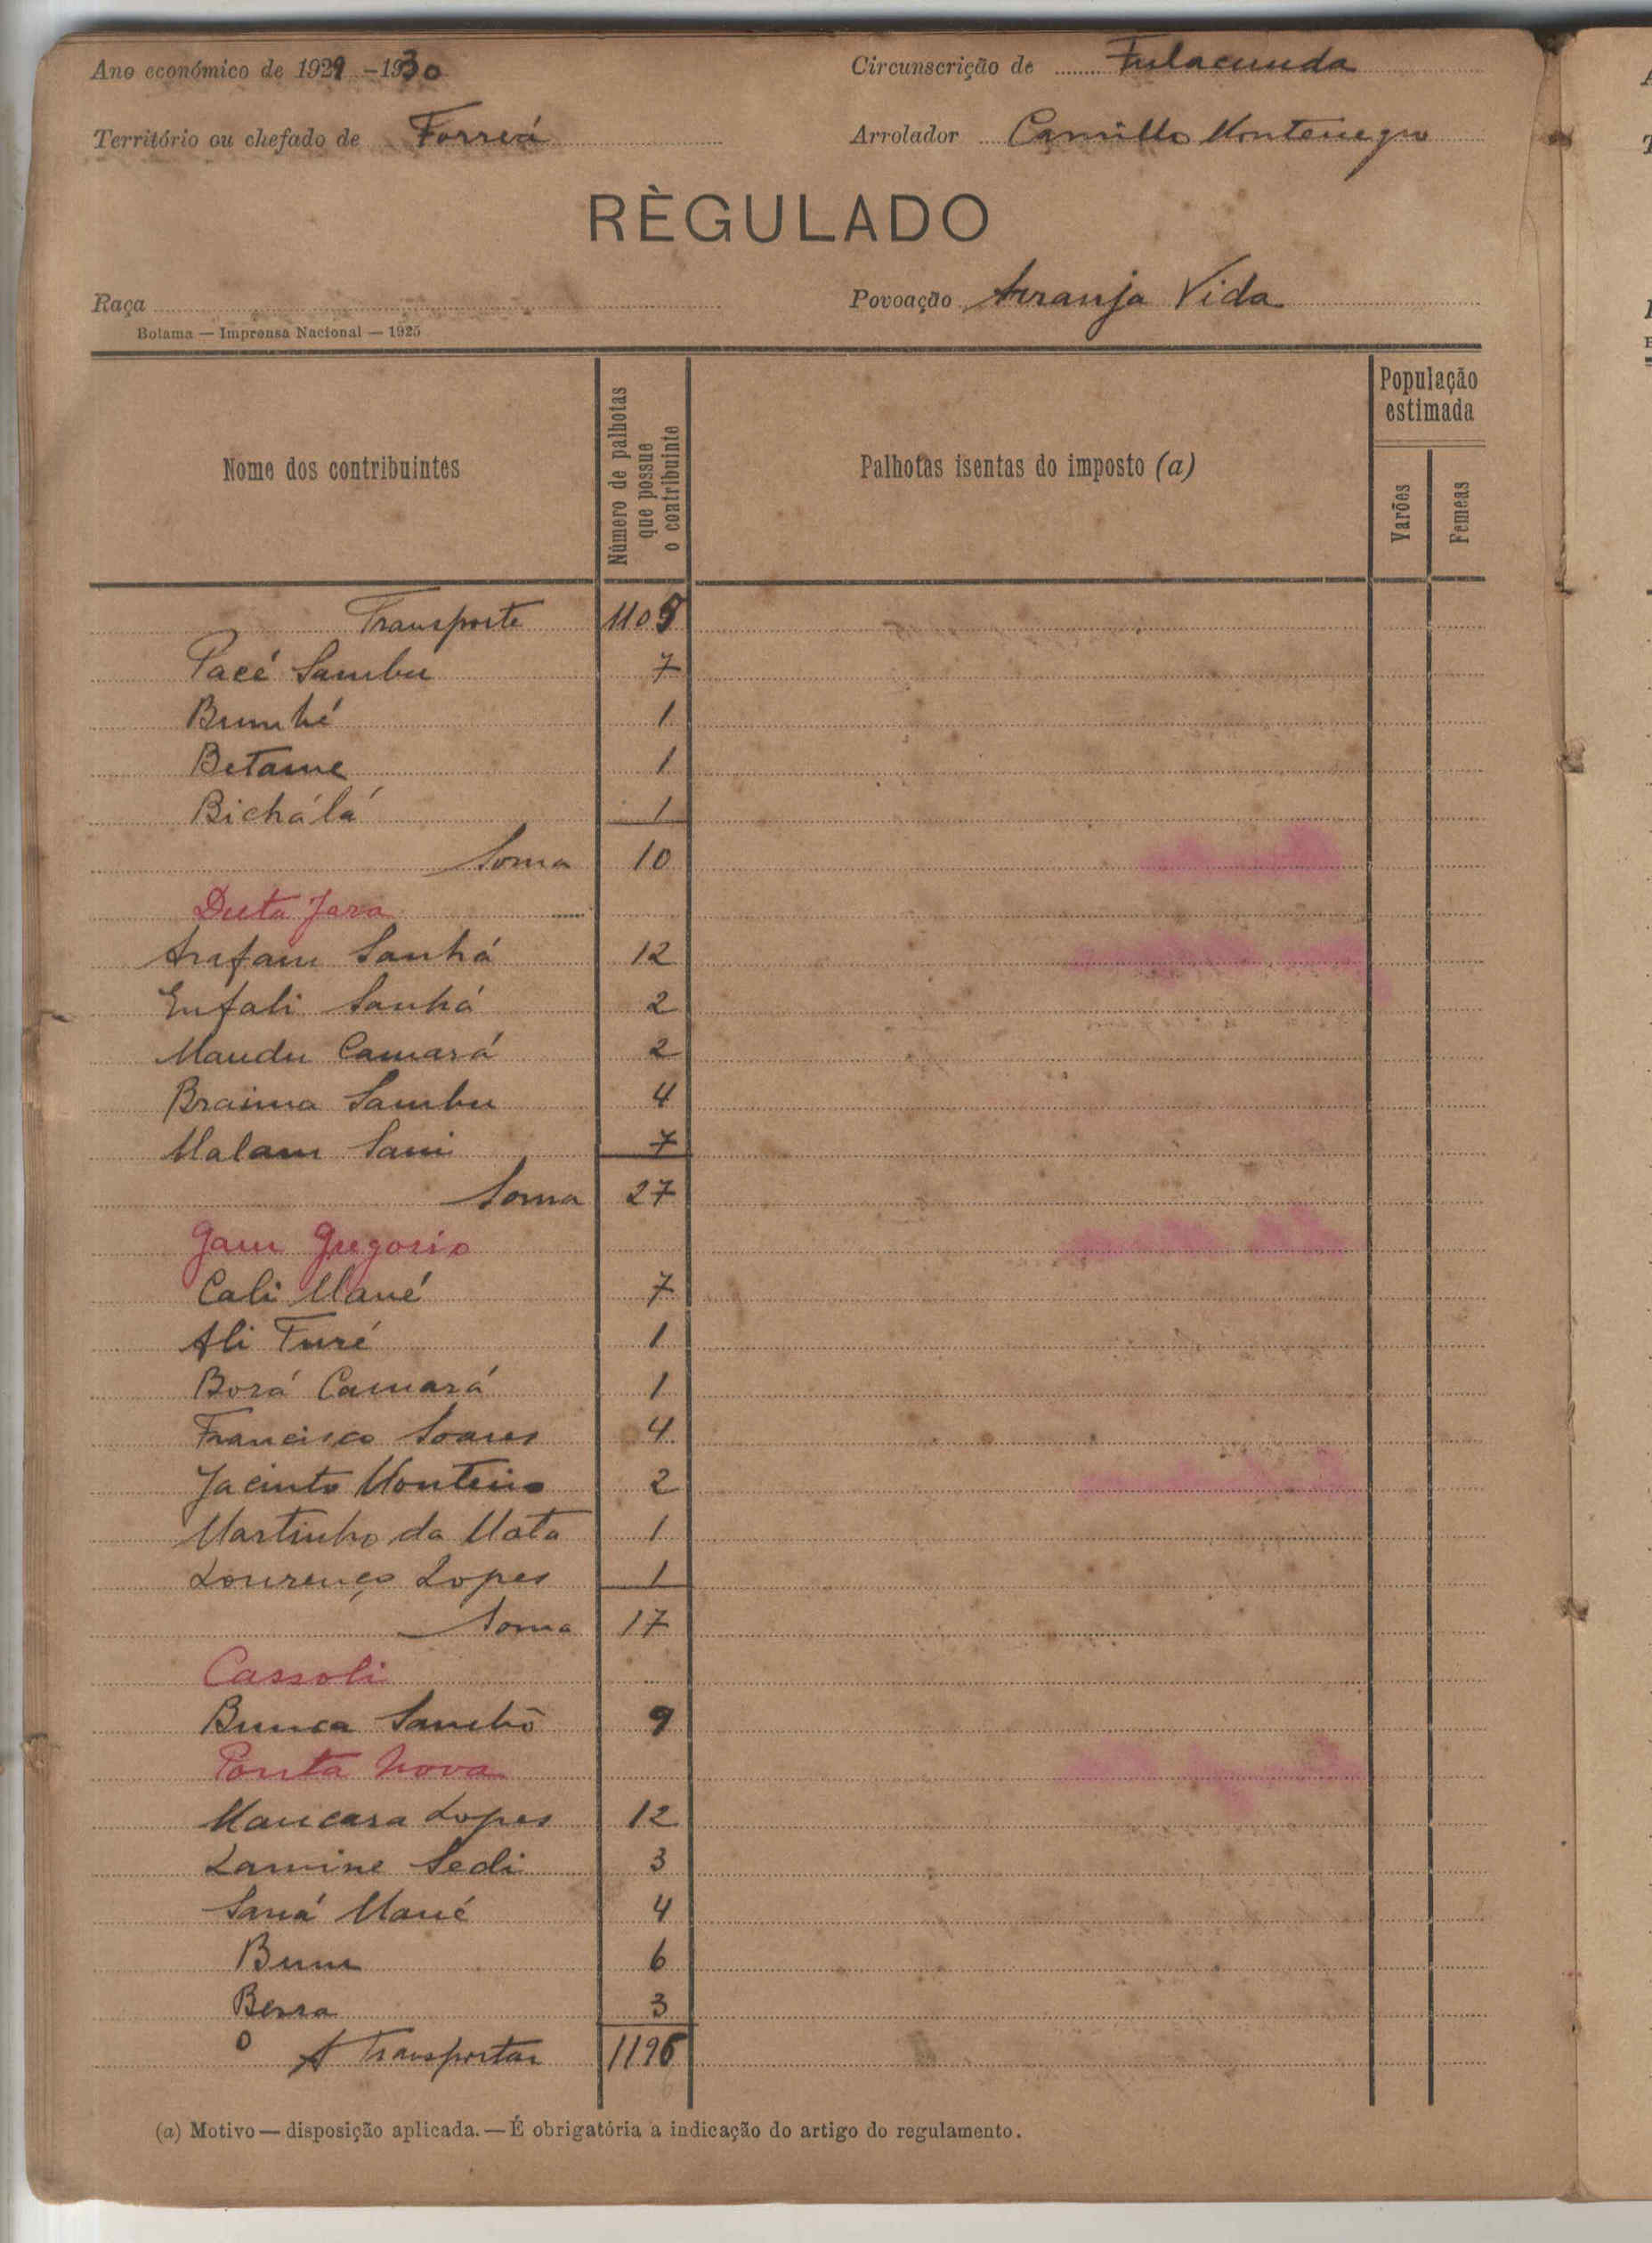 Ano económico de 1929-1930
Circunscrição de Fulacunda
Território ou chefado de Forreá
Arrolador Camillo Montenegro
RÈGULADO
Raça
Povoação Arranja Vida
Bolama — Imprensa Nacional — 1925
Nome dos contribuintes
Número de palhotas
que possue
o contribuinte
Palhotas isentas do imposto (a)
População
estimada
Varões
Femeas
Transporte 1105
Pacé Sambu 7
Bumhé 1
Betame 1
Bichálá 1
Soma 10
Duta Jara
Arafam Sanhá 12
Enfali Sanhá 2
Mandu Camará 2
Braima Sambu 4
Malam Sani 7
Soma 27
Gam Gregorio
Cali Mané 7
Ali Turé 1
Borá Camará 1
Francisco Soares 4
Jacinto Monteiro 2
Martinho da Mata 1
Lourenço Lopes 1
Soma 17
Cassoli
Bunca Sambô 9
Ponta Nova
Mancara Lopes 12
Lamine Sedi 3
Saná Mané 4
Bum 6
Bessa 3
A Transportar 1196
(a) Motivo — disposição aplicada. — É obrigatória a indicação do artigo do regulamento.